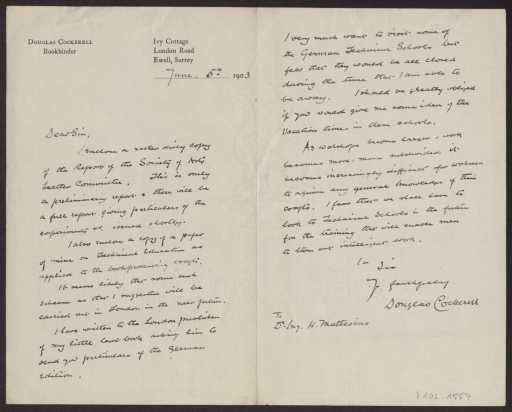 DOUGLAS COCKERELL
Bookbinder
Ivy Cottage
London Road
Ewell, Surrey
June 5th 1903
Dear Sir,
I enclose a rather dirty copy
of the Report of the Society of Arts
Leather Committee. This is only
a preliminary report & there will be
a full report giving particulars of the
experiments &c issued shortly.
I also enclose a copy of a paper
of mine on Technical Education as
applied to the bookproducing crafts.
It seems likely that some such
scheme as that I suggested will be
carried out in London in the near future.
I have written to the London publisher
of my little book asking him to
send you particulars of the German
edition.
I very much want to visit some of
the German Technical Schools but
fear that they would be all closed
during the time that I am able to
be away. I should be greatly obliged
if you would give me some idea of the
Vacation times in these schools.
As workshops become larger & work
becomes more & more subdivided it
becomes increasingly difficult for workmen
to acquire any general knowledge of their
crafts. I fear that we shall have to
look to Technical Schools in the future
for the training that will enable men
to turn out intelligent work.
I am Sir
Yrs faithfully
Douglas Cockerell
To
Dr. Ing. H. Muthesius